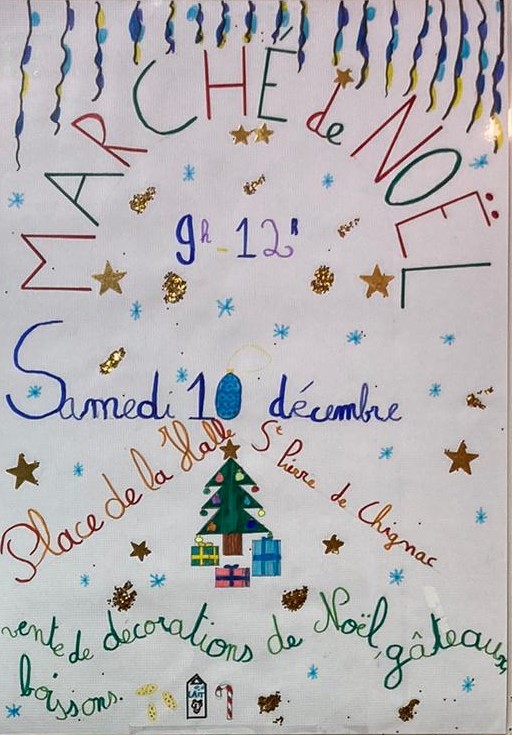 MARCHÉ de NOËL
9h-12h
Samedi 10 décembre
Place de la Halle St Pierre de Chignac
vente de décorations de Noël, gâteaux,
boissons.
LAIT